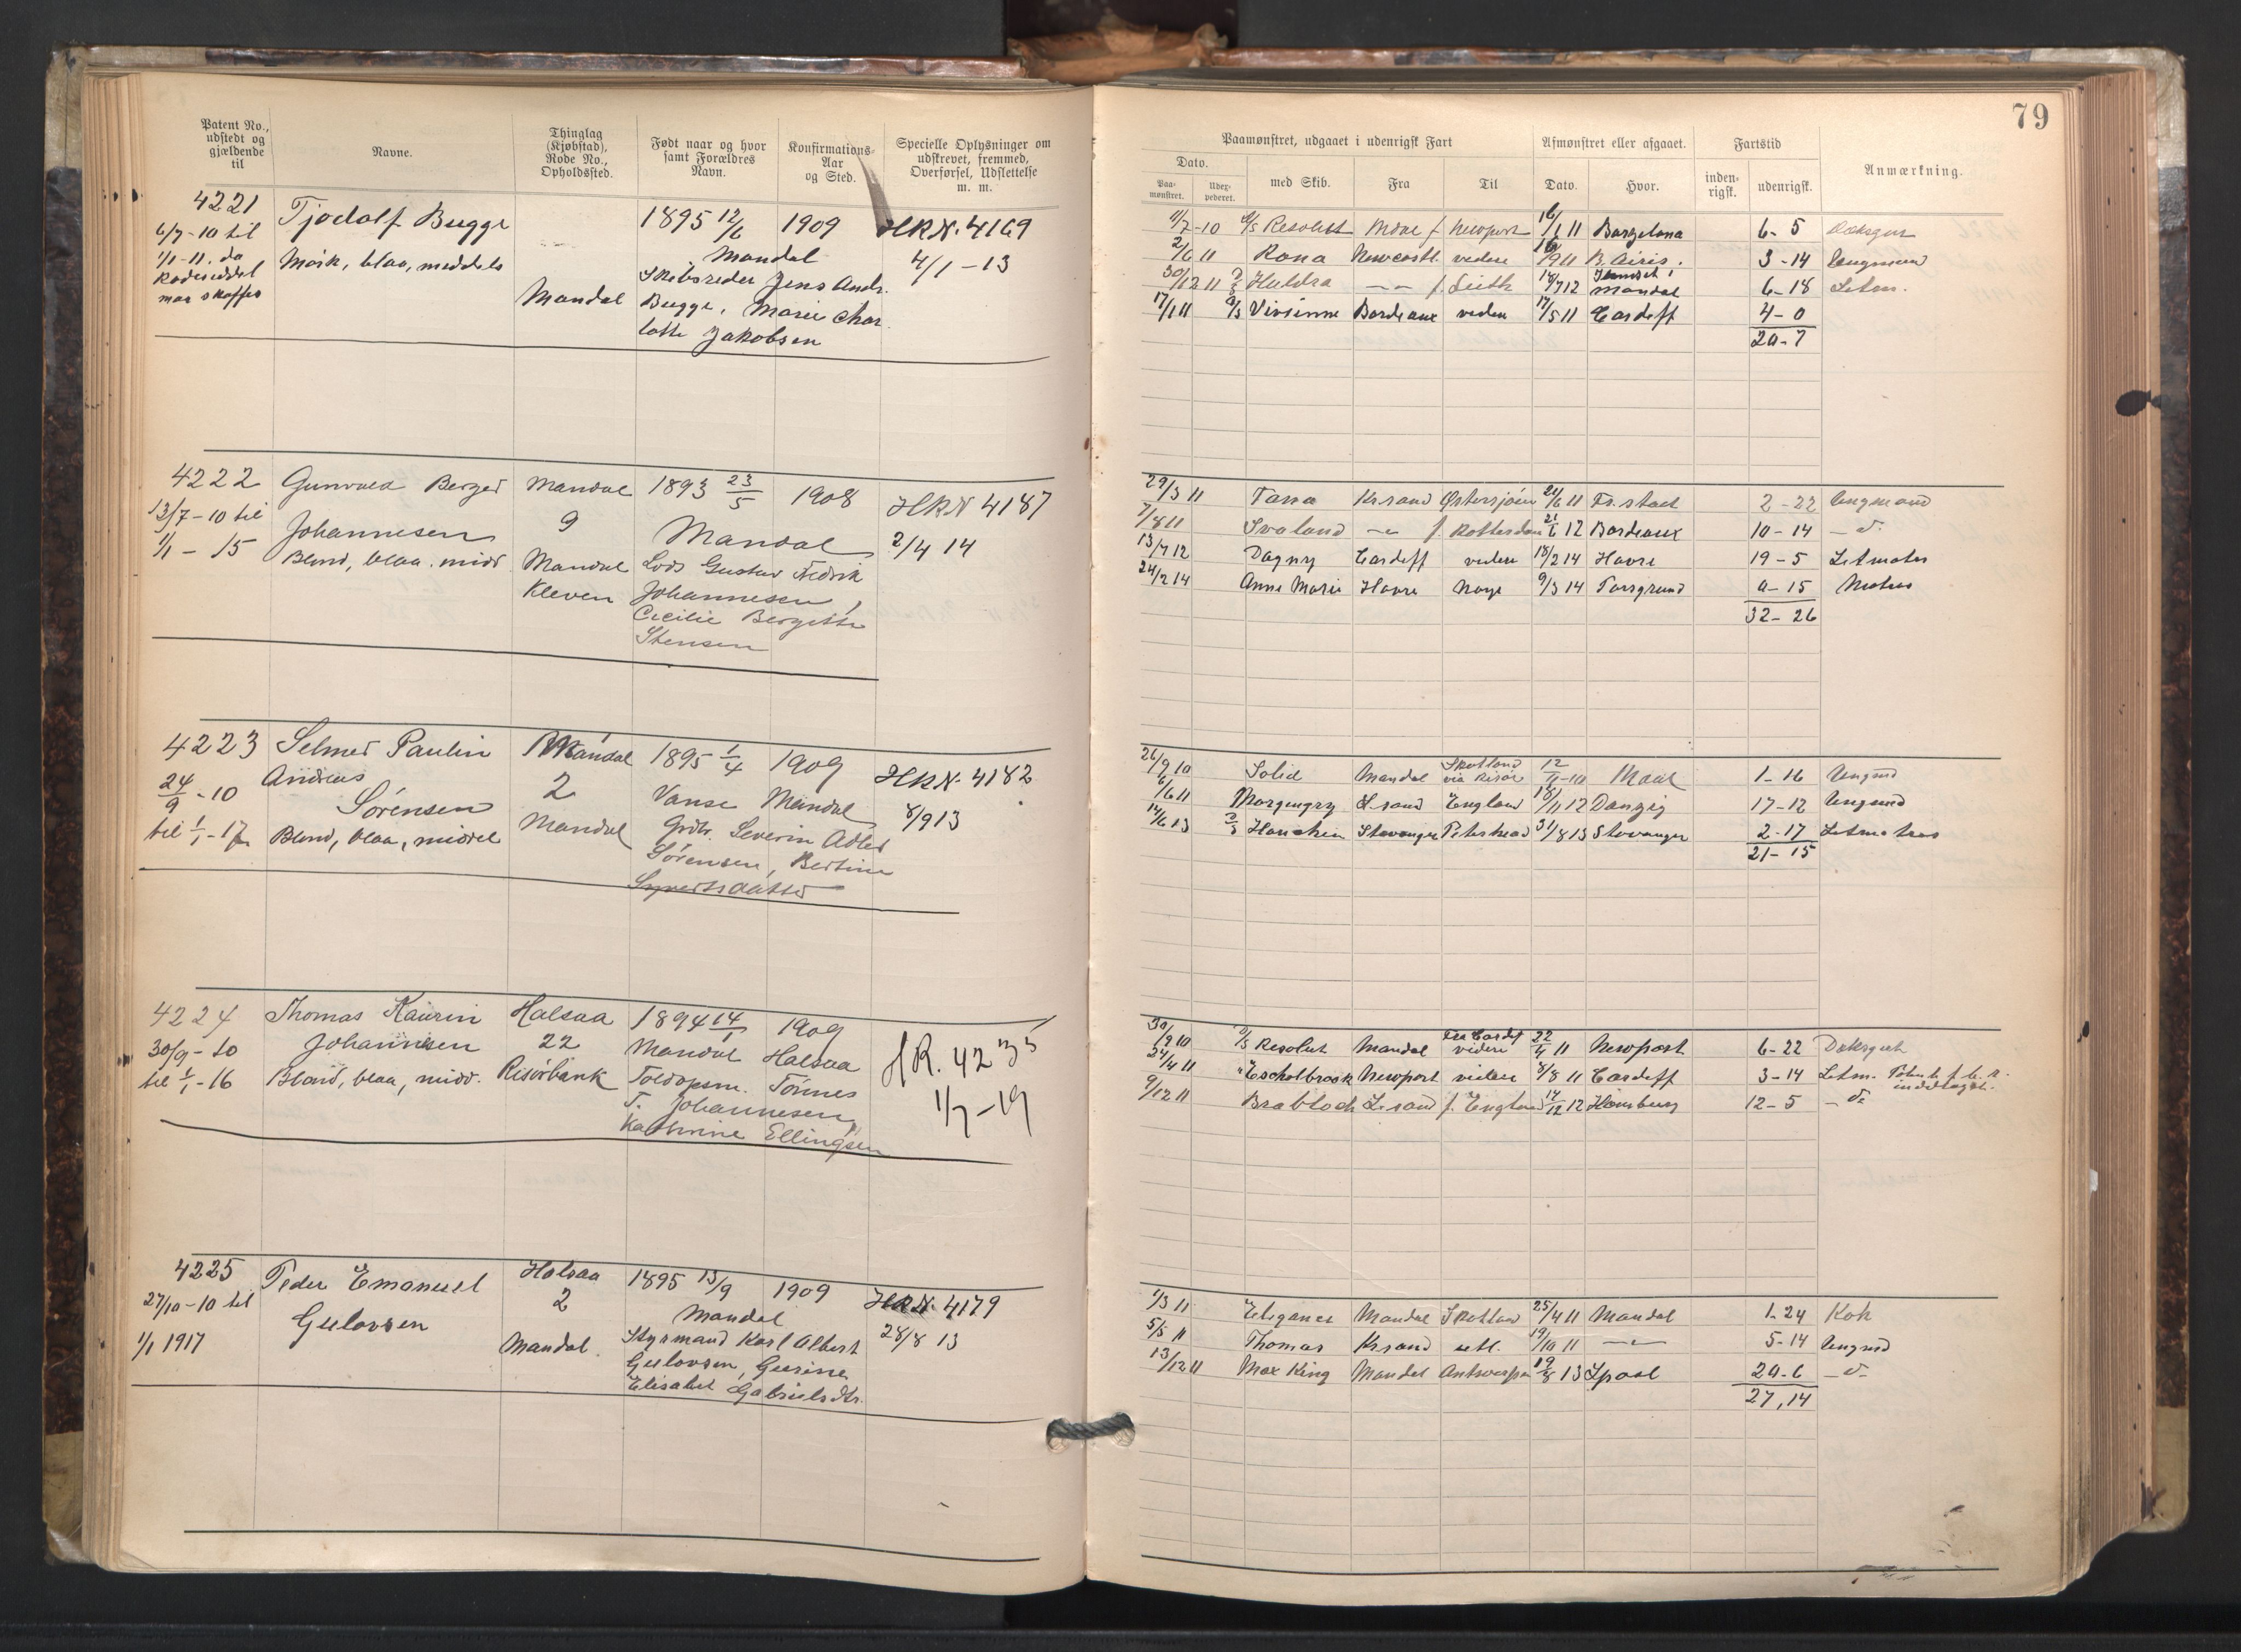 79
Patent No., udstedt og gjældende til
Navne.
Thinglag (Kjøbstad), Rode No., Opholdssted.
Født naar og hvor samt Forældres Navn.
Konfirmations-Aar og Sted.
Specielle Oplysninger om udskrevet, fremmed, Overførsel, Udslettelse m. m.
Paamønstret, udgaaet i udenrigsk Fart
Afmønstret eller afgaaet.
Fartstid
Anmærkning.
Dato.
Paamønstret.
Uderpederet.
med Skib.
Fra
Til
Dato.
Hvor.
indenrigsk.
udenrigsk.
4221 Tjodolf Bugge 1895 12/6 1909 HRN. 4169
6/7-10 til Mörk, blaa, meddels Mandal 4/1-13
1/1-11. da Skibsreder Jens Andr.
Rodeseddel Mandal Bugge, Marie Char
maa skaffes lotte Jakobsen
1/7-10 S/S Resolut Mdal f Newport 16/1 11 Barzelona 6-5 Dæksgut
2/6 11 Rona Newcastl. videre 16/9 11 B. Airis. 3-14 Ungmand
30/12 11 Huldra f. Leith 18/7 12 Mandal 6-18 Letm.
17/1 11 S/S Vivienne Bordeaux videre 17/5 11 Cardiff 4-0
20-7
4222 Gunvald Berger Mandal 1893 23/5 1908 HRN 4187
13/7-10 til Johannesen 9 Mandal 2/4 14
1/1-15 Blond, blaa. midd. Mandal Lods Gustav Fredrik
Kleven Johannesen,
Cecilie Bergitte
Stensen
29/3 11 Tana Kr.sand Østersjöen 21/6 11 Fr.stad 2-22 Ungmand
7/8 11 Svaland f. Rotterdam 21/6 12 Bordeaux 10-14 - d.
13/7 12 Dagny Cardiff videre 18/2 14 Havre 19-5 Letmatr
24/2 14 Anne Marie Havre Norge 9/3 14 Porsgrund 0-15 Matros
32-26
4223 Selmer Paulin Mandal 1895 1/4 1909 HRN. 4182
24/9-10 Andreas 2 Vanse Mandal 8/9 13
Sørensen Mandal Grdr. Severin Adler
til 1/1-17 Blond, blaa, middel Sørensen, Bertine
Syvertsdatter
26/9 10 Solid Mandal Skotland via Risør 12/11-10 Mdal 1-16 Ungmd
6/6 11 Morgengry L-sand England 18/11 12 Danzig 17-12 Ungmd
14/6 13 Stavanger Peterhead 31/8 13 Stavanger 2-17 Letmatros
21-15
4224 Thomas Kaurin Halsaa 1894 14/1 1909 HR. 4235
30/9-10 Johannesen 22 Mandal Halsaa 1/7-19
til 1/1-16 Blond, blaa, midd. Risørbank Toldopsm. Tönnes
T. Johannesen,
Kathrine Ellingsen
30/9 10 S/S Resolut Mandal Fra Cardiff videre 22/4 11 Newport 6-22 Dæksgut
24/4 11 " Escholbrook Newport videre 8/8 11 Cardiff 3-14 Letm.
9/12 11 Brabloch L.sand f. England 14/12 12 Hamburg 12-5 - d.
4225 Peder Emanuel Halsaa 1895 13/9 1909 HRN. 4179
27/10-10 til Gulovsen 2 Mandal 28/8 13
1/1 1917 Mandal. Styrmand Karl Albert
Gulovsen, Gurine
Elisabet Gabrielsdtr.
1/3 11 Elegance Mandal Skotland 25/4 11 Mandal 1-24 Kok
5/5 11 Thomas Kr.sand utl. 19/10 11 5-14 Ungmd
13/12 11 Max King Mandal Antwerpen 19/8 13 Lpool 20-6 - d.
27,14